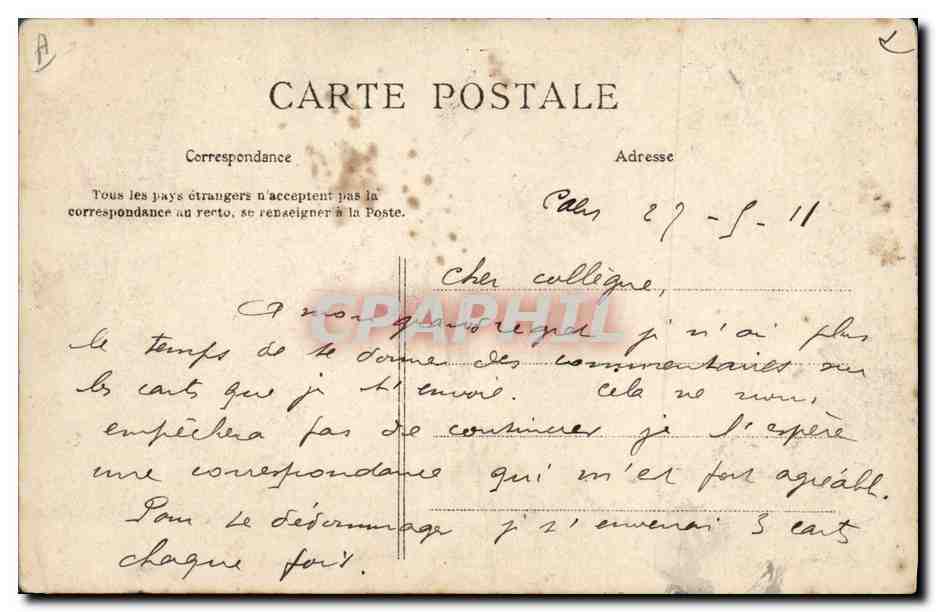 A
CARTE POSTALE
Correspondance
Adresse
Tous les pays étrangers n'acceptent pas la
correspondance au recto, se renseigner à la Poste.
27 - 5 - 11
Cher collègue,
A mon grand regret je n'ai plus
le temps de te donner des commentaires sur
les cartes que je t'envoie. Cela ne nous
empêchera pas de continuer je l'espère
une correspondance qui m'est fort agréable.
Pour te dédommager je t'enverrai 3 cartes
chaque fois.
CPAPHIL